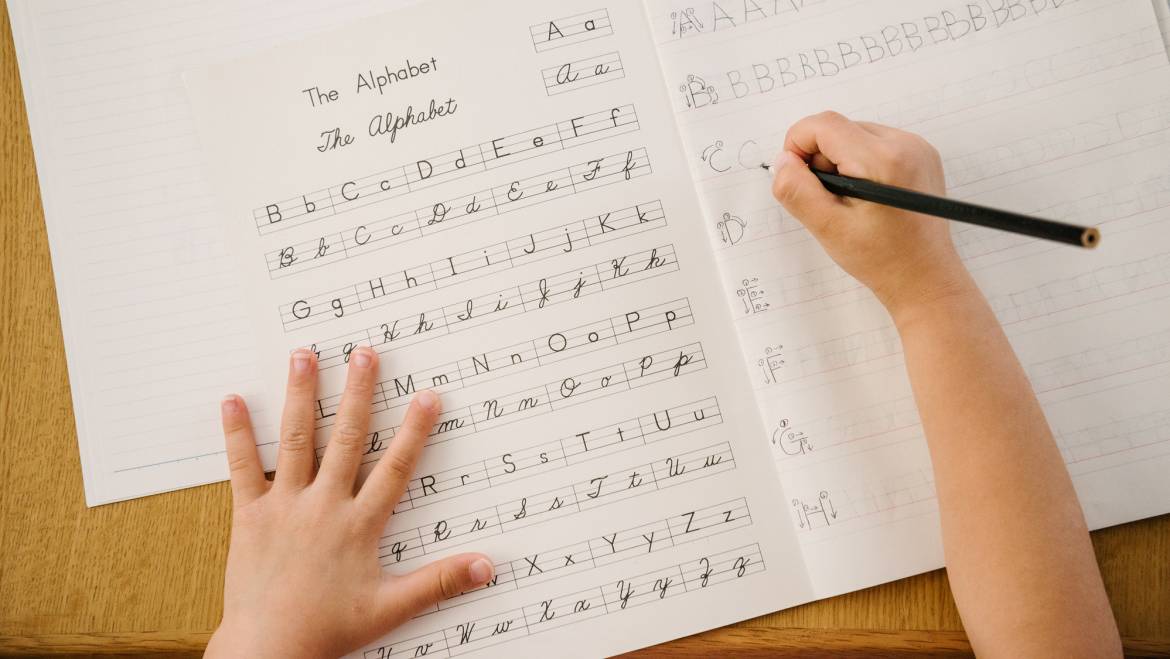 A a
A a
The Alphabet
The Alphabet
B b C c D d E e F f
B b C c D d E e F f
G g H h I i J j K k
g H h I i J j K k
L M m N n O o P p
l m N n O o P p
R r S s T t U u
q R r S s T t U u
w X x Y y Z z
v W w X x Y y Z z
A A A A A
B B B B B B B B B B B B B B B
C C
D
E
F
G
H